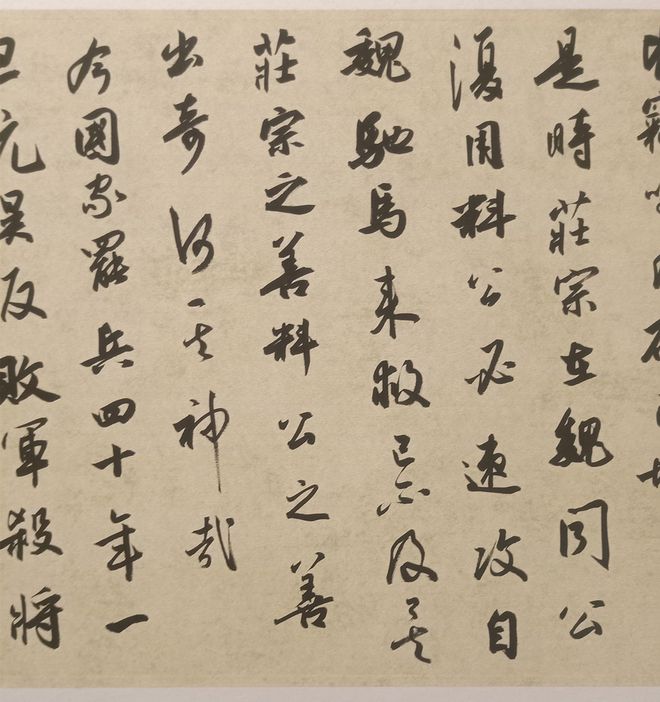 是時莊宗在魏聞公
復用料公必速攻自
魏馳馬來救已不及矣
莊宗之善料公之善
出奇何其神哉
今國家罷兵四十年一
旦元昊反敗軍殺將